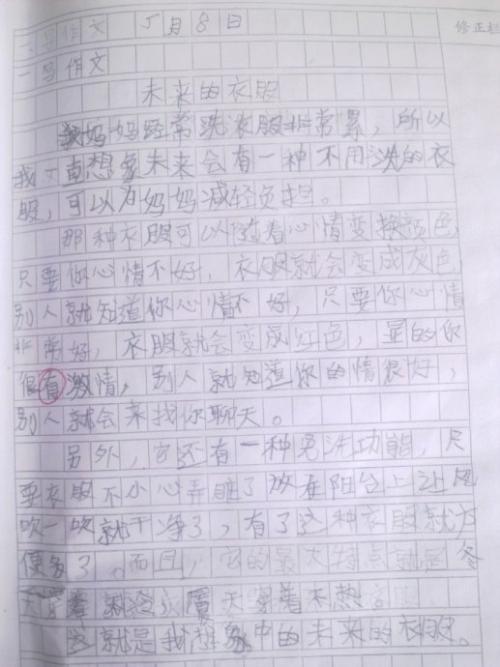 二号作文 5月8日
修正栏
一号作文
未来的衣服
妈妈经常洗衣服非常累，所以
我一直想象未来会有一种不用洗的衣
服，可以为妈妈减轻负担。
那种衣服可以随着心情变换颜色
只要你心情不好，衣服就会变成灰色
别人就知道你心情不好，只要你心情
非常好，衣服就会变成红色，显的你
很有激情，别人就知道你的情很好，
别人就会来找你聊天。
另外，它还有一种免洗功能，只
要衣服不小心弄脏了放在阳台上让风
吹一吹就干净了，有了这种衣服就方
便多了。而且，它的最大特点就是冬
天穿着 夏天穿着不热。
这就是我想象中的未来的衣服。